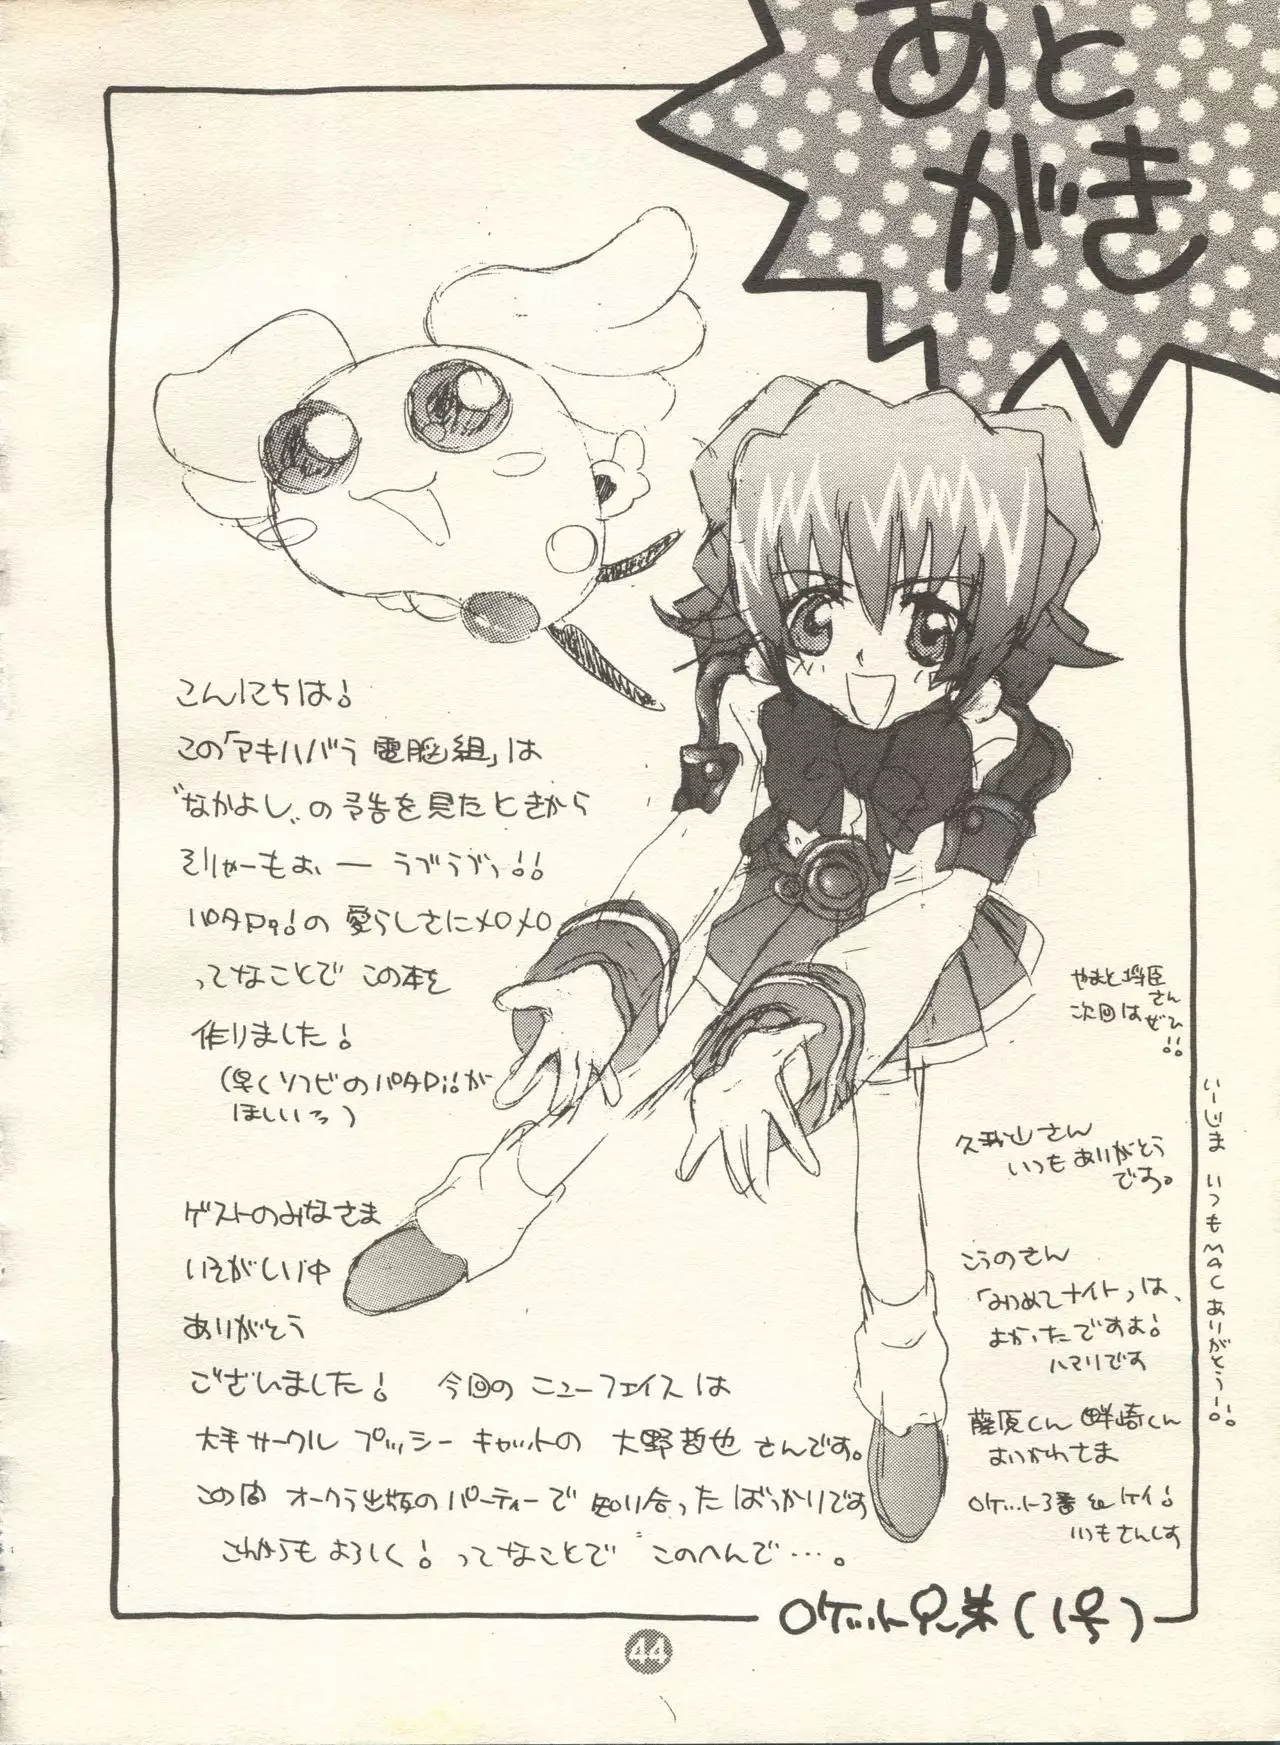 あと
がき
こんにちは!
この「アキハバラ電脳組」は
"なかよし"の予告を見たときから
そりゃーもぉ、ー ラブラブっ!!
パタPi!の愛らしさにメロメロ
ってなことで この本を
作りました!
(早くソフビのパタPi!が
ほしいっ)
ゲストのみなさま
いそがしい中
ありがとう
ございました! 今回の ニューフェイスは
大手サークル プッシーキャットの 大野哲也 さんです。
この間 オークラ出版のパーティーで 知り合ったばっかりです
これからもよろしく! ってなことで このへんで…。
やまと将臣さん
次回はぜひ!!
さん
いつも ありがとう
です。
こうのさん
「みつめてナイト」は、
よかったですよ!
ハマリです
藤原くん 畔崎くん
おいかわさま
ロケット3番 & ケイ!
いつもさんしょ
いーじま いつもMACありがとうー!!
ロケット兄弟(1号)
44